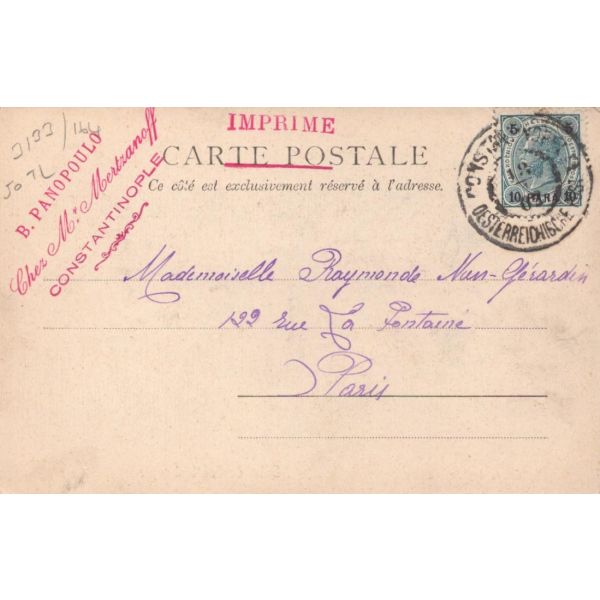 3133/164
50 TL
B. PANOPOULO
Chez Mr Mertzanoff
CONSTANTINOPLE
IMPRIME
CARTE POSTALE
Ce côté est exclusivement réservé à l'adresse.
5
10 PARA 10
OESTERREICHISCHE
Mademoiselle Raymonde Nan-Gérardin
122 rue La Fontaine
Paris